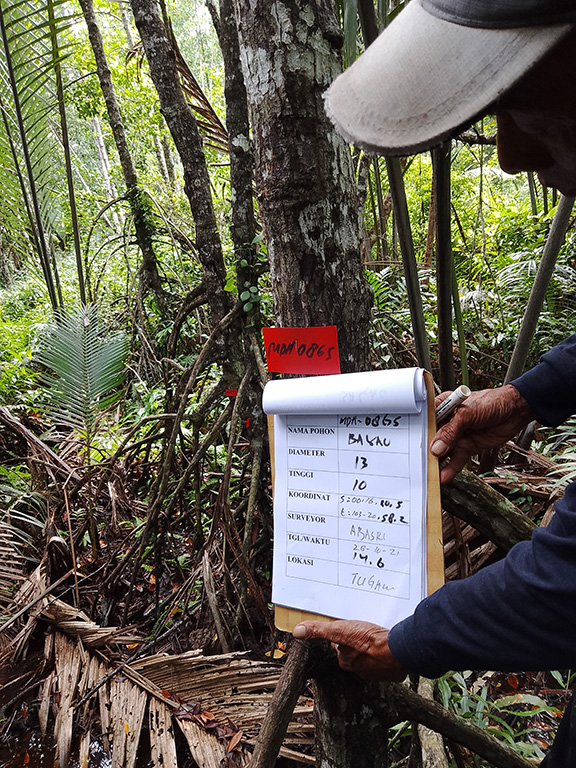 MDM 0865
MDM-0865
NAMA POHON BAKAU
DIAMETER 13
TINGGI 10
KOORDINAT S=00-16.10.5
E=103-20.58.2
SURVEYOR ABASRI
TGL/WAKTU 28-10-21
14.6
LOKASI TUGAW